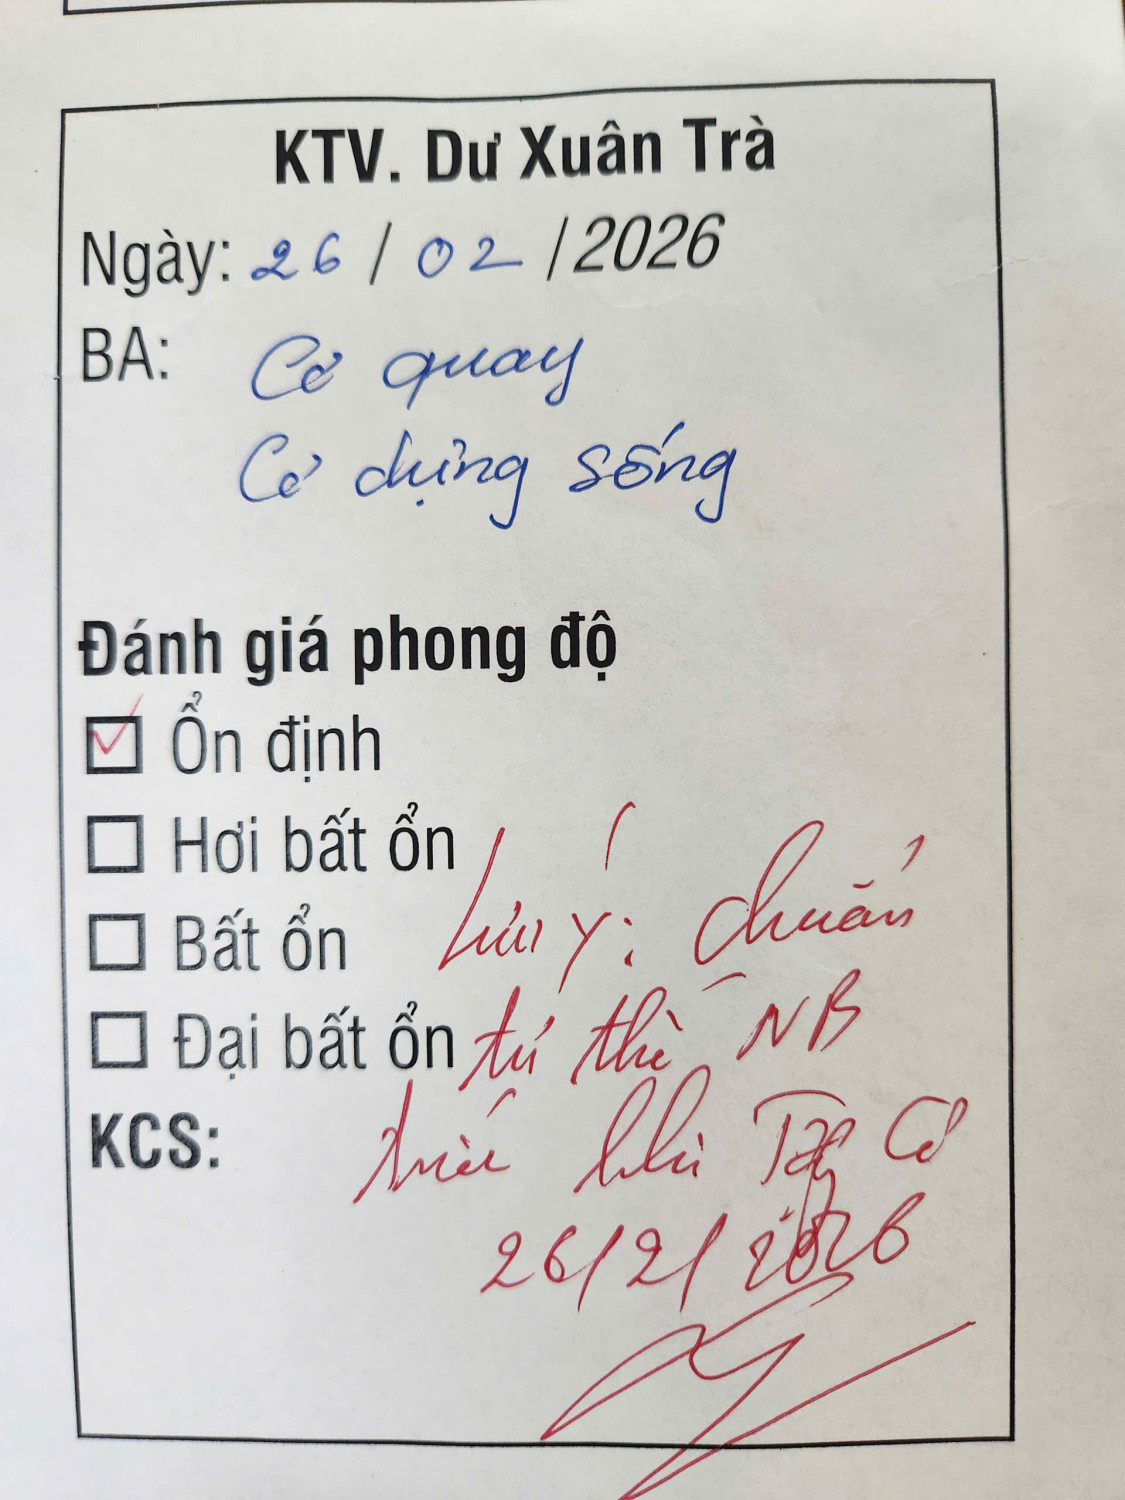 KTV. Dư Xuân Trà
Ngày: 26 / 02 /2026
BA: Cơ quay
Cơ dựng sống
Đánh giá phong độ
Ổn định
Hơi bất ổn
Bất ổn
Đại bất ổn
KCS:
Lưu ý: chuẩn
tư thế NB
trước khi Tập Cơ
26/2/2026